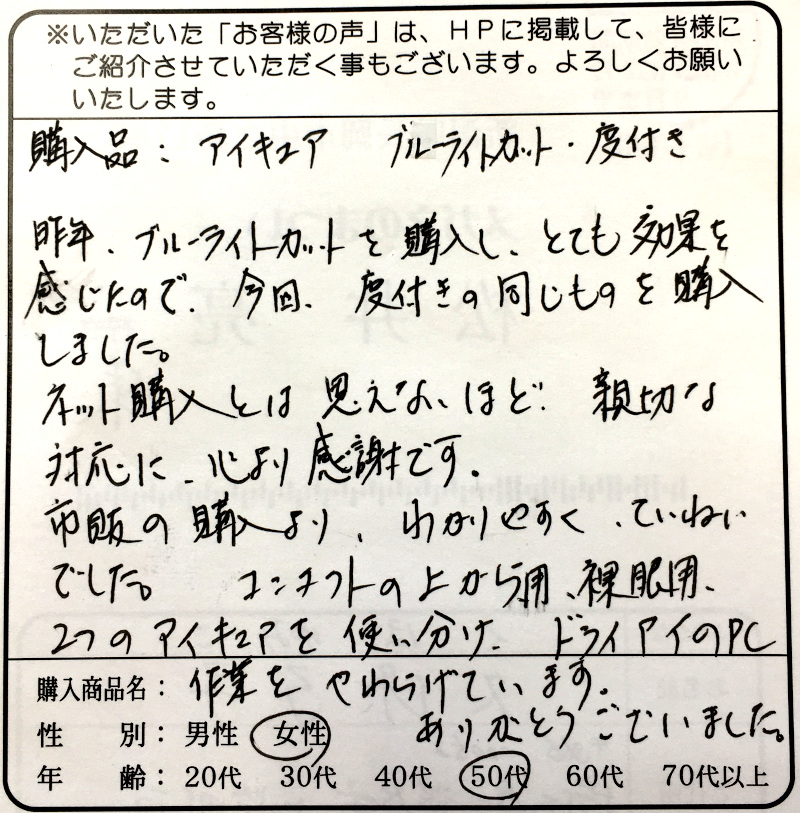 ※いただいた「お客様の声」は、ＨＰに掲載して、皆様に
ご紹介させていただく事もございます。よろしくお願い
いたします。
購入品：アイキュア　ブルーライトカット・度付き
昨年、ブルーライトカットを購入し、とても効果を
感じたので、今回、度付きの同じものを購入
しました。
ネット購入とは思えないほど、親切な
対応に、心より感謝です。
市販の購入より、わかりやすく、ていねい
でした。　コンタクトの上から用、裸眼用、
2つのアイキュアを使い分け、ドライアイのPC
購入商品名：作業をやわらげています。
性　別：男性　女性　ありがとうございました。
年　齢：20代　30代　40代　50代　60代　70代以上